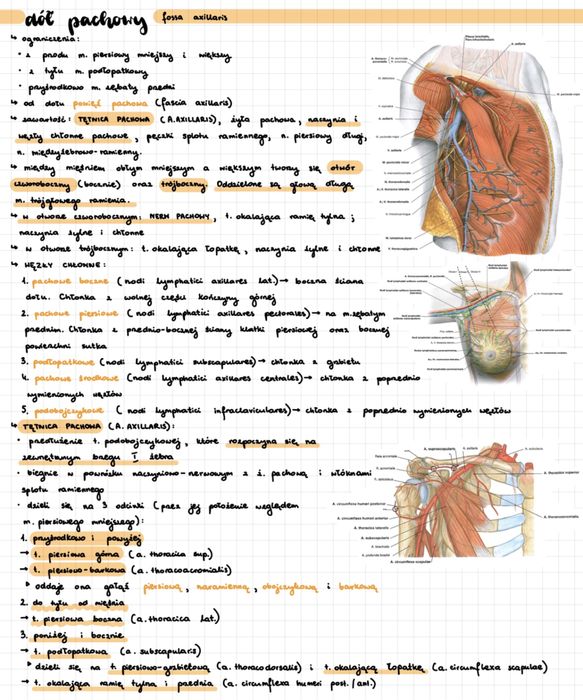 dół pachowy fossa axillaris
↳ ograniczenia:
• z przodu m. piersiowy mniejszy i większy
• z tyłu m. podłopatkowy
• przyśrodkowo m. zębaty przedni
↳ od dołu powięź pachowa (fascia axillaris)
↳ zawartość: TĘTNICA PACHOWA (A.AXILLARIS), żyła pachowa, naczynia i
węzły chłonne pachowe, pęczki splotu ramiennego, n. piersiowy długi,
n. międzyżebrowo-ramienny.
↳ między mięśniem obłym mniejszym a większym tworzy się otwór
czworoboczny (bocznie) oraz trójboczny. Oddzielone są głową długą
m. trójgłowego ramienia.
↳ w otworze czworobocznym: NERW PACHOWY, t. okalająca ramię tylna;
naczynia żylne i chłonne
↳ w otworze trójbocznym: t. okalająca łopatkę, naczynia żylne i chłonne
↳ WĘZŁY CHŁONNE:
1. pachowe boczne (nodi lymphatici axillares lat.) → boczna ściana
dołu. Chłonka z wolnej części kończyny górnej
2. pachowe piersiowe (nodi lymphatici axillares pectorales) → na m.zębatym
przednim. Chłonka z przednio-bocznej ściany klatki piersiowej oraz bocznej
powierzchni sutka
3. podłopatkowe (nodi lymphatici subscapulares) → chłonka z grzbietu
4. pachowe środkowe (nodi lymphatici axillares centrales) → chłonka z poprzednio
wymienionych węzłów
5. podobojczykowe (nodi lymphatici infraclaviculares) → chłonka z poprzednio wymienionych węzłów
↳ TĘTNICA PACHOWA (A. AXILLARIS):
• przedłużenie t. podobojczykowej, które rozpoczyna się na
zewnętrznym brzegu I żebra
• biegnie w powrózku naczyniowo-nerwowym z ż. pachową i włóknami
splotu ramiennego
• dzieli się na 3 odcinki (przez jej położenie względem
m. piersiowego mniejszego):
1. przyśrodkowo i powyżej
→ t. piersiowa górna (a. thoracica sup.)
→ t. piersiowo-barkowa (a. thoracoacromialis)
▹ oddaje ona gałąź piersiową, naramienną, obojczykową i barkową
2. do tyłu od mięśnia
→ t. piersiowa boczna (a. thoracica lat.)
3. poniżej i bocznie
→ t. podłopatkowa (a. subscapularis)
▹ dzieli się na t. piersiowo-grzbietową (a. thoracodorsalis) i t. okalającą łopatkę (a. circumflexa scapulae)
→ t. okalająca ramię tylna i przednia (a. circumflexa humeri post./ant.)
Plexus brachialis
A. axillaris
A. suprascapularis
A. thoracica superior
A. thoracoacromialis
A. circumflexa humeri posterior
A. circumflexa humeri anterior
A. thoracica lateralis
A. subscapularis
A. brachialis
A. profunda brachii
A. circumflexa scapulae